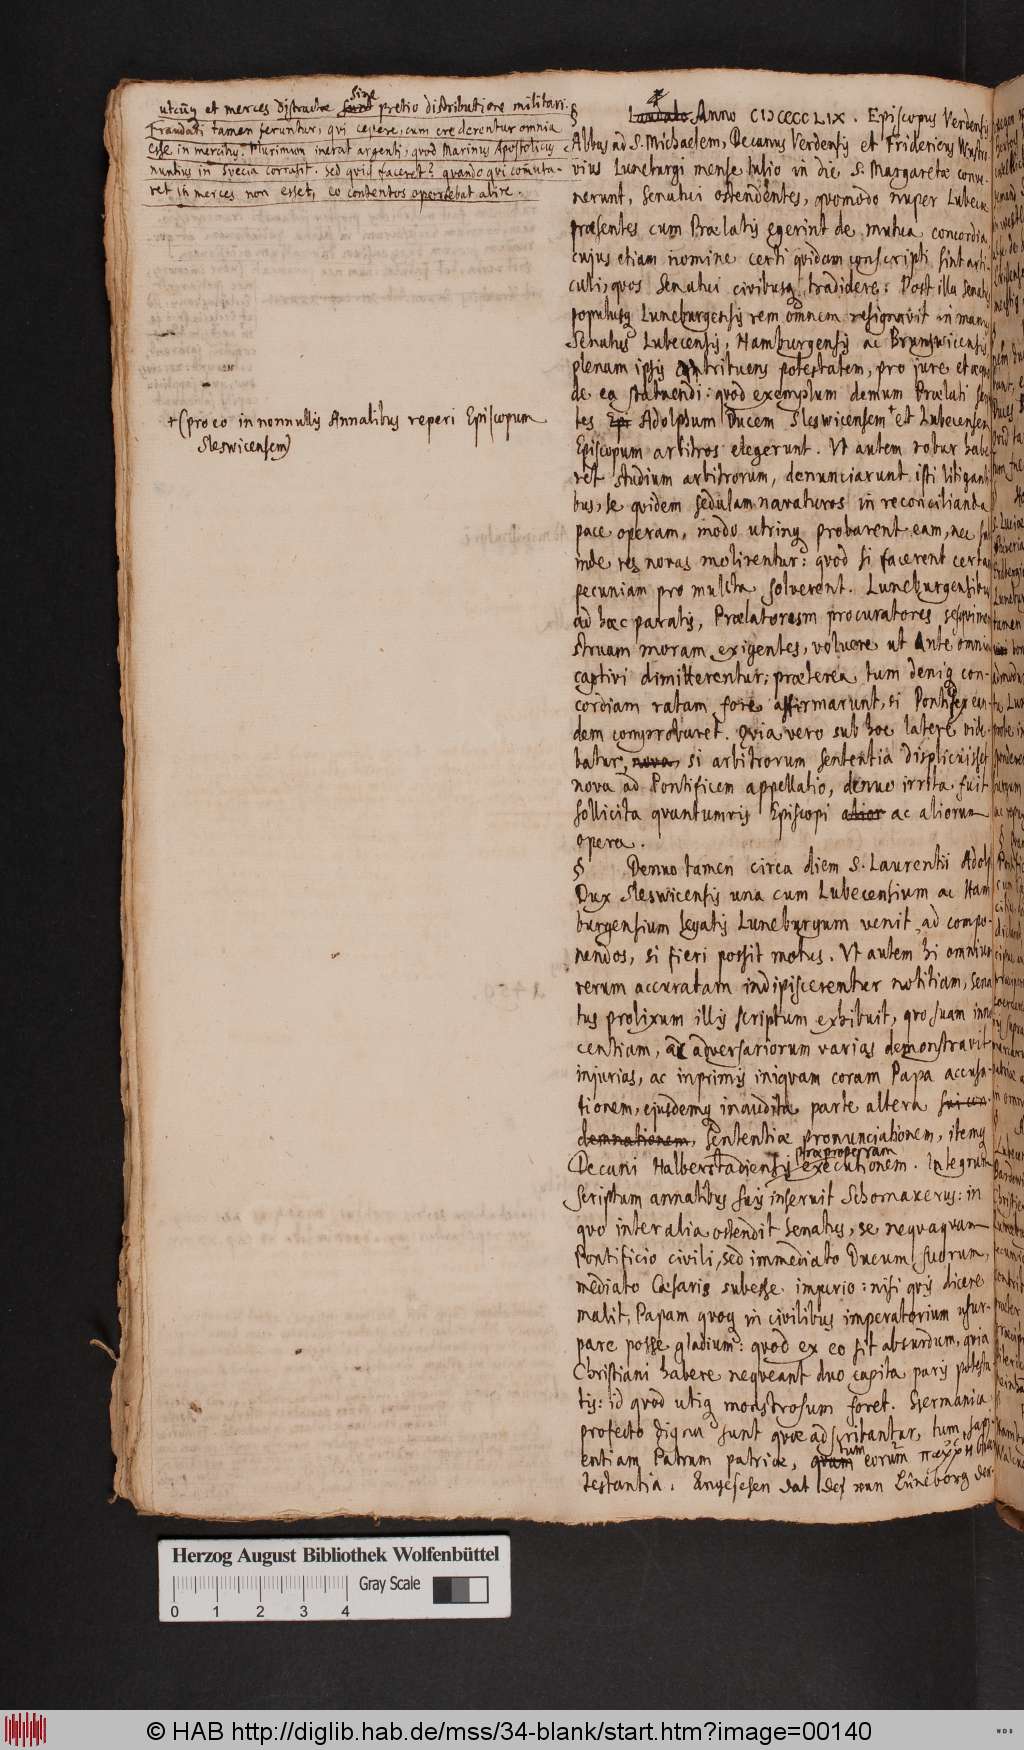 utcunq et merces distractae sunt sine pretio distributione militari.
Fraudati tamen feruntur, qui cepere, cum crederentur omnia
esse in mercibus. Plurimum inerat argenti, quod Marinus Apostolicus
nuntius in Svecia corrasit. sed quid faceret? quando qui commuta-
ret in merces non esset, eo contentos oportebat abire.
+ (pro eo in nonnullis Annalibus reperi Episcopum
Sleswicensem)
§ Laudato Anno CIↃCCCCLIX. Episcopus Verdensis
Abbas ad S. Michaelem, Decanus Verdensis et Fridericus
vius Luneburgi mense Iulio in die S. Margaretae conve-
nerunt, Senatui ostendentes, quomodo nuper Lubecae
praesentes cum Praelatis egerint de mutua concordia
cujus etiam nomine certi quidam conscripti sint arti-
culi, quos Senatui civibusq tradidere: Post illa Senatus
populusq Luneburgensis rem omnem resignavit in manus
Senatus Lubecensis, Hamburgensis ac Brunswicensis
plenam ipsis contribuens potestatem, pro jure et aequo
de ea statuendi: quod exemplum demum Praelati
tes Ep Adolphum Ducem Sleswicensem + et Lubecensem
Episcopum arbitros elegerunt. Ut autem robur habe
ret studium arbitrorum, denunciarunt isti litiganti
bus, se quidem sedulam navaturos in reconcilianda
pace operam, modo utrinq probarent eam, nec su
inde res novas molirentur: quod si facerent certam
pecuniam pro mulcta solverent. Luneburgensibus
ad haec paratis, Praelatorum procuratores sesquimen
struam moram exigentes, voluere ut ante omnia
captivi dimitterentur; praeterea tum deniq con-
cordiam ratam fore affirmarunt, si Pontifex ean-
dem comprobaret. Quia vero sub hoc latere vide-
batur, nova, si arbitrorum sententia displicuisset
nova ad Pontificem appellatio, denuo irrita fuit
sollicita quantumvis Episcopi alior ac aliorum
opera.
§ Denuo tamen circa diem S. Laurentii Adolp
Dux Sleswicensis una cum Lubecensium ac Ham
burgensium legatis Luneburgum venit ad compo-
nendos, si fieri possit motus. Ut autem hi omnium
rerum accuratam indipiscerentur notitiam, sena
tus prolixum illis scriptum exhibuit, quo suam inno
centiam, ac adversariorum varias demonstravit
injurias, ac inprimis iniquam coram Papa accusa-
tionem, ejusdemq inaudita parte altera sui con-
demnationem, sententiae pronunciationem, itemq
Decani Halberstadiensis praeproperam executionem. Integrum
scriptum annalibus suis inseruit Schomakerus: in
quo inter alia ostendit senatus, se nequaquam
Pontificio civili, sed immediato Ducum suorum,
mediato Caesaris subesse imperio: nisi quis dicere
malit, Papam quoq in civilibus imperatorium usur-
pare posse gladium: quod ex eo sit absurdum, quia
Christiani habere nequeant duo capita paris potesta
tis: id quod utiq monstrosum foret. Germanica
profecto digna sunt quae adscribantur, tum sapi-
entiam Patrum patriae, quam tum eorum
testantia. Angesehen dat des van Lüneborg
Herzog August Bibliothek Wolfenbüttel
Gray Scale
0 1 2 3 4
© HAB http://diglib.hab.de/mss/34-blank/start.htm?image=00140